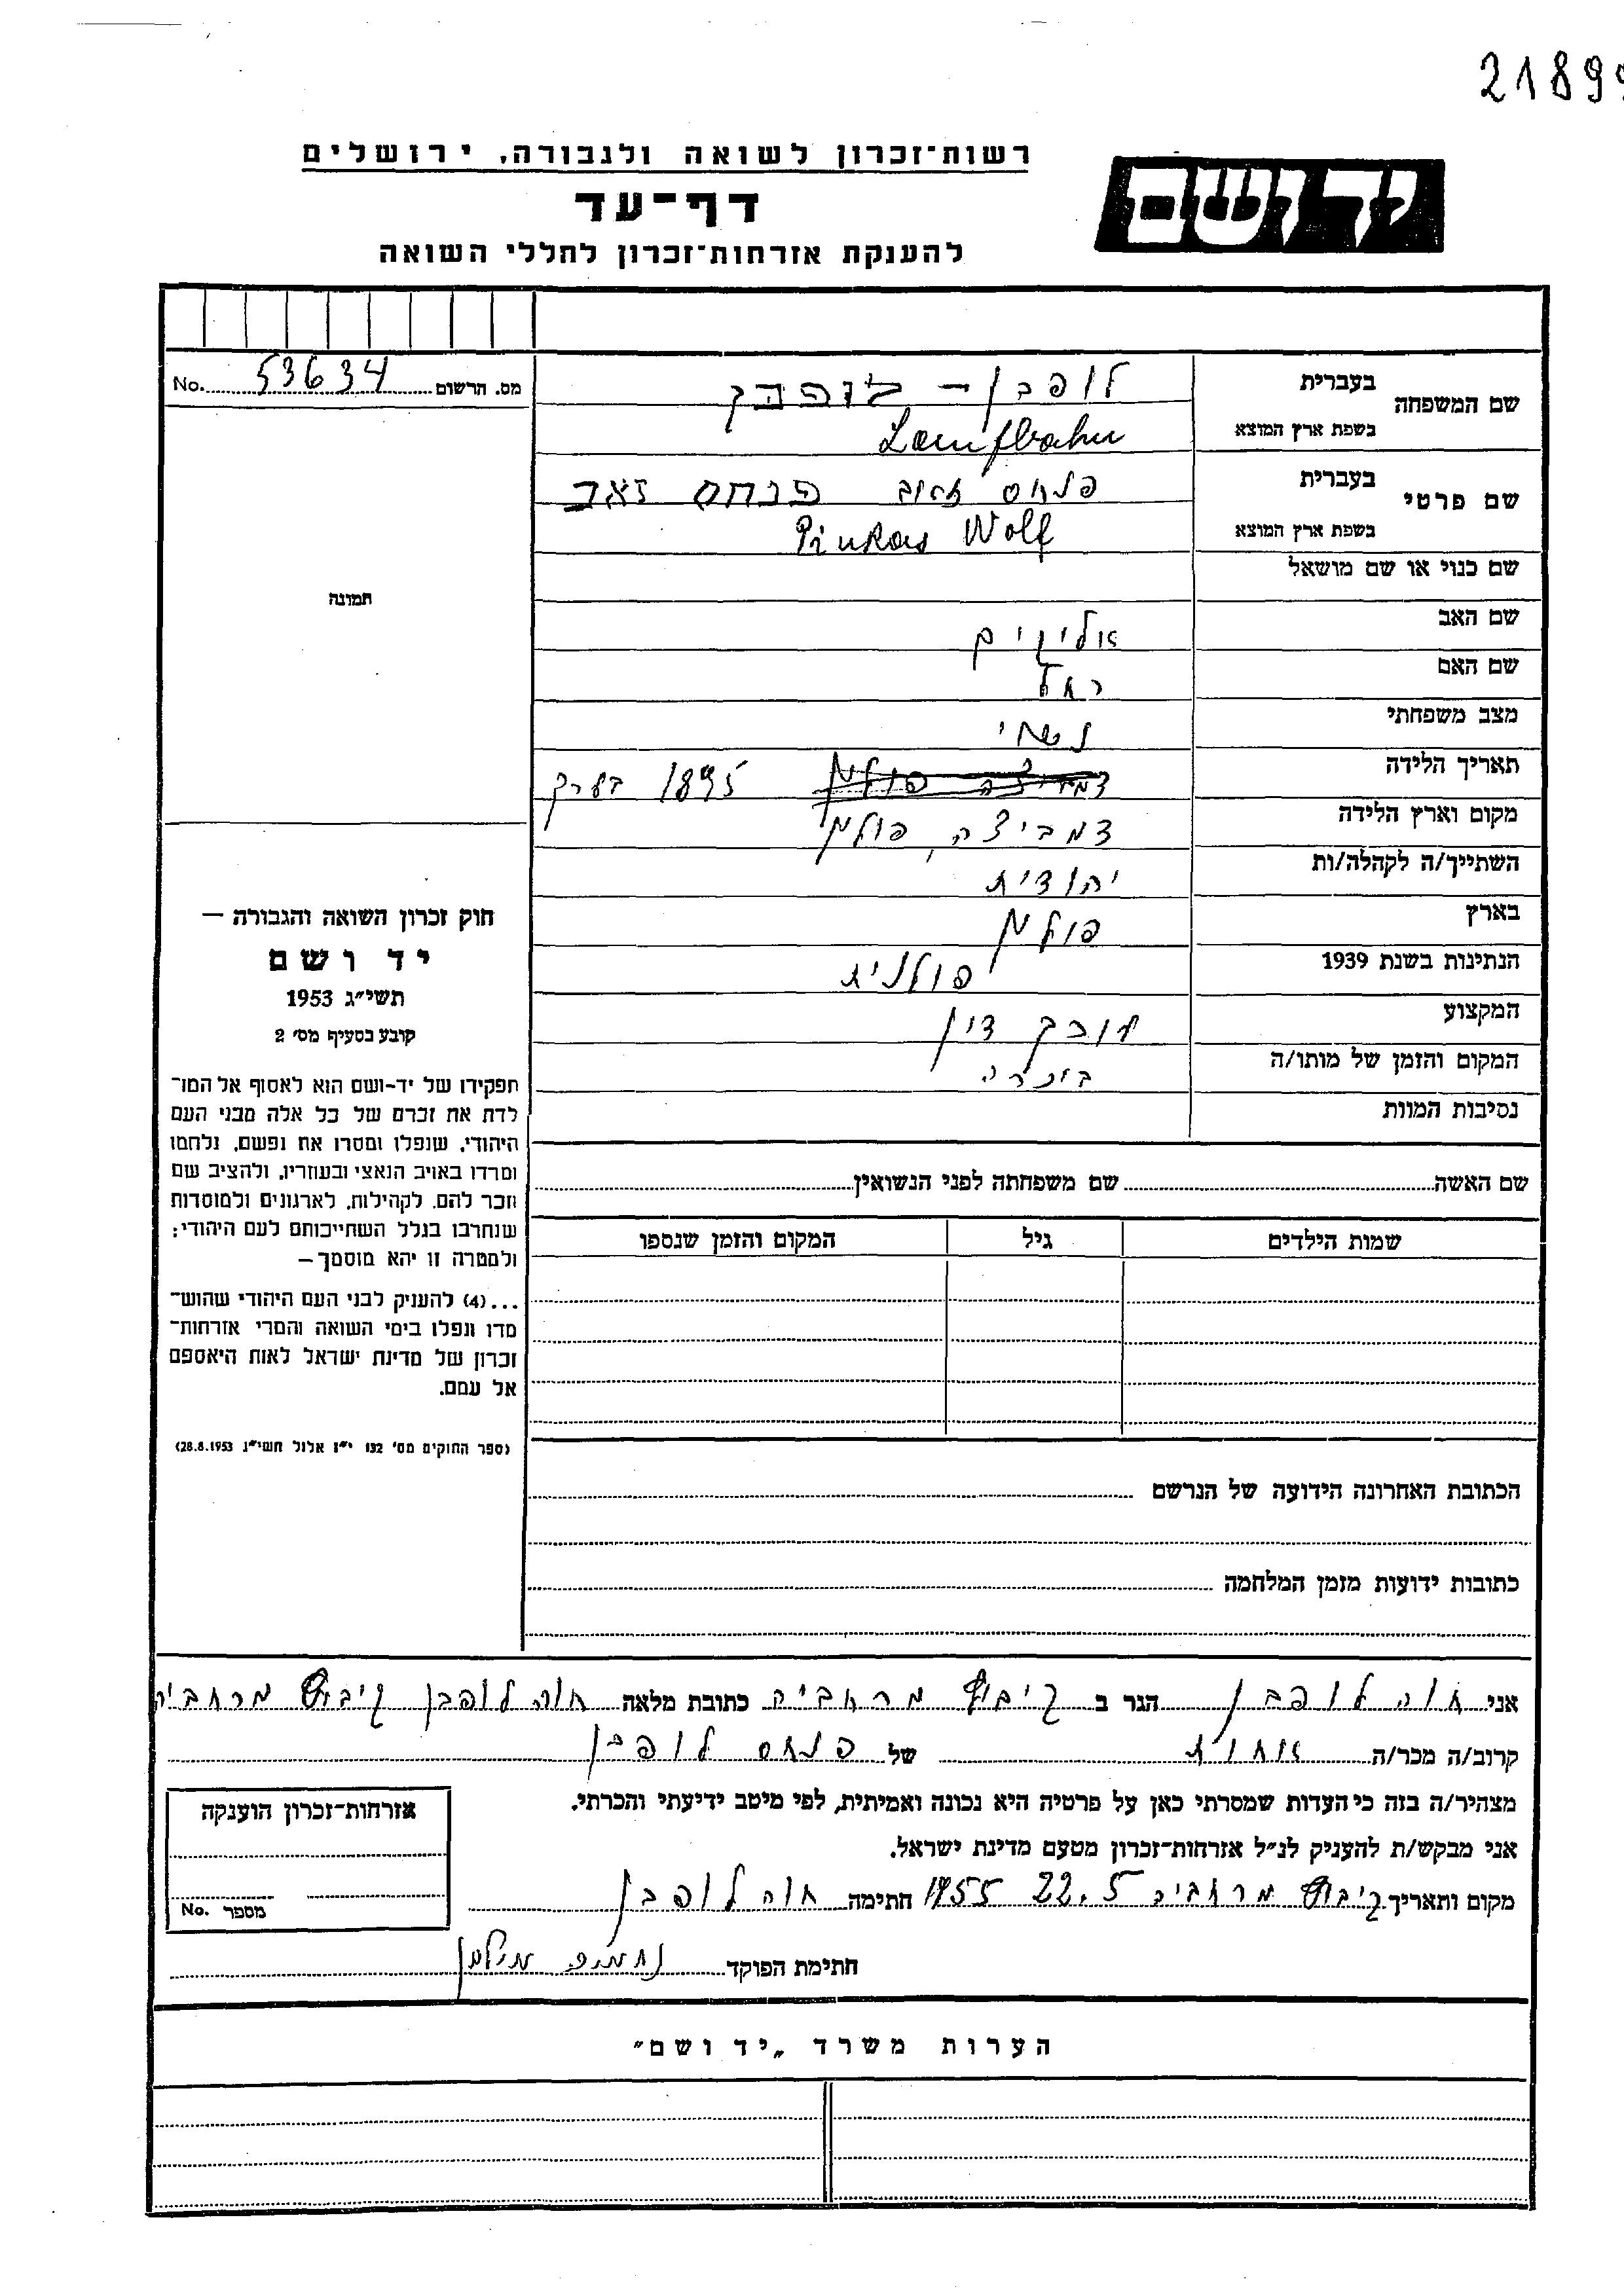 21899
רשות־זכרון לשואה ולגבורה, ירושלים
יד ושם
דף־עד
להענקת אזרחות־זכרון לחללי השואה
מס. הרשום 53634 No.
שם המשפחה
בעברית לופבן – לופבן
בשפת ארץ המוצא Laufbahn
שם פרטי
בעברית פנחס זאב פנחס זאב
בשפת ארץ המוצא Pinkas Wolf
שם כנוי או שם מושאל
שם האב אליקים
שם האם רחל
מצב משפחתי נשוי
תאריך הלידה 1895 בערך
מקום וארץ הלידה דמביצה, פולין
השתייך/ה לקהלה/ות יהודית
בארץ פולין
הנתינות בשנת 1939 פולנית
המקצוע עורך דין
המקום והזמן של מותו/ה
נסיבות המוות
תמונה
חוק זכרון השואה והגבורה –
יד ושם
תשי״ג 1953
קובע בסעיף מס׳ 2
תפקידו של יד-ושם הוא לאסוף אל המו־
לדת את זכרם של כל אלה מבני העם
היהודי, שנפלו ומסרו את נפשם, נלחמו
ומרדו באויב הנאצי ובעוזריו, ולהציב שם
וזכר להם, לקהילות, לארגונים ולמוסדות
שנחרבו בגלל השתייכותם לעם היהודי;
ולמטרה זו יהא מוסמך –
...(4) להעניק לבני העם היהודי שהוש־
מדו ונפלו בימי השואה והמרי אזרחות־
זכרון של מדינת ישראל לאות היאספם
אל עמם.
(ספר החוקים מס׳ 132 י״ז אלול תשי״ג 28.8.1953)
שם האשה שם משפחתה לפני הנשואין
שמות הילדים גיל המקום והזמן שנספו
הכתובת האחרונה הידועה של הנרשם
כתובות ידועות מזמן המלחמה
אני חוה לופבן הגר ב קיבוץ מרחביה כתובת מלאה חוה לופבן קיבוץ מרחביה
קרוב/ה מכר/ה אחות של פנחס לופבן
מצהיר/ה בזה כי העדות שמסרתי כאן על פרטיה היא נכונה ואמיתית, לפי מיטב ידיעתי והכרתי.
אני מבקש/ת להעניק לנ״ל אזרחות־זכרון מטעם מדינת ישראל.
מקום ותאריך קיבוץ מרחביה 22.5 1955 חתימה חוה לופבן
חתימת הפוקד
אזרחות־זכרון הוענקה
מספר No.
הערות משרד „יד ושם״